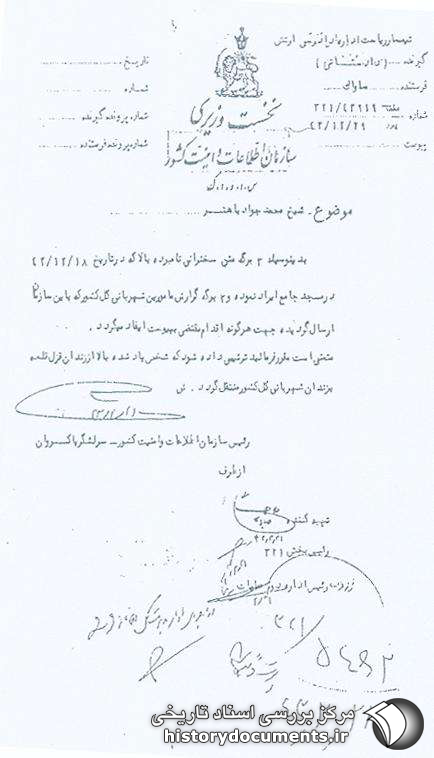 تیمسار ریاست اداره دادرسی ارتش
گیرنده (دادستانی)
فرستنده ساواک
شماره ۳۲۱/۴۲۹۱۹
۴۲/۱۲/۲۹
پیوست
تاریخ
شماره
شماره پرونده گیرنده
شماره پرونده فرستنده
نخست وزیری
سازمان اطلاعات و امنیت کشور
س.ا.و.ا.ک
موضوع - شیخ محمد جواد باهنر
بدینوسیله ۳ برگ متن سخنرانی نامبرده بالا که در تاریخ ۴۲/۱۲/۱۸
در مسجد جامع ایراد نموده و ۳ برگ گزارش مامورین شهربانی کل کشور که باین سازمان
ارسال گردیده جهت هرگونه اقدام مقتضی به پیوست ایفاد میگردد .
متمنی است مقرر فرمائید ترتیبی داده شود که شخص یاد شده بالا از زندان قزل قلعه
بزندان شهربانی کل کشور منتقل گردد . ش
رئیس سازمان اطلاعات و امنیت کشور - سرلشگر پاکروان
از طرف
تهیه کننده
رئیس بخش ۳۲۱
رئیس اداره
۳۲۱
۵۴۹۲
مرکز بررسی اسناد تاریخی
historydocuments.ir